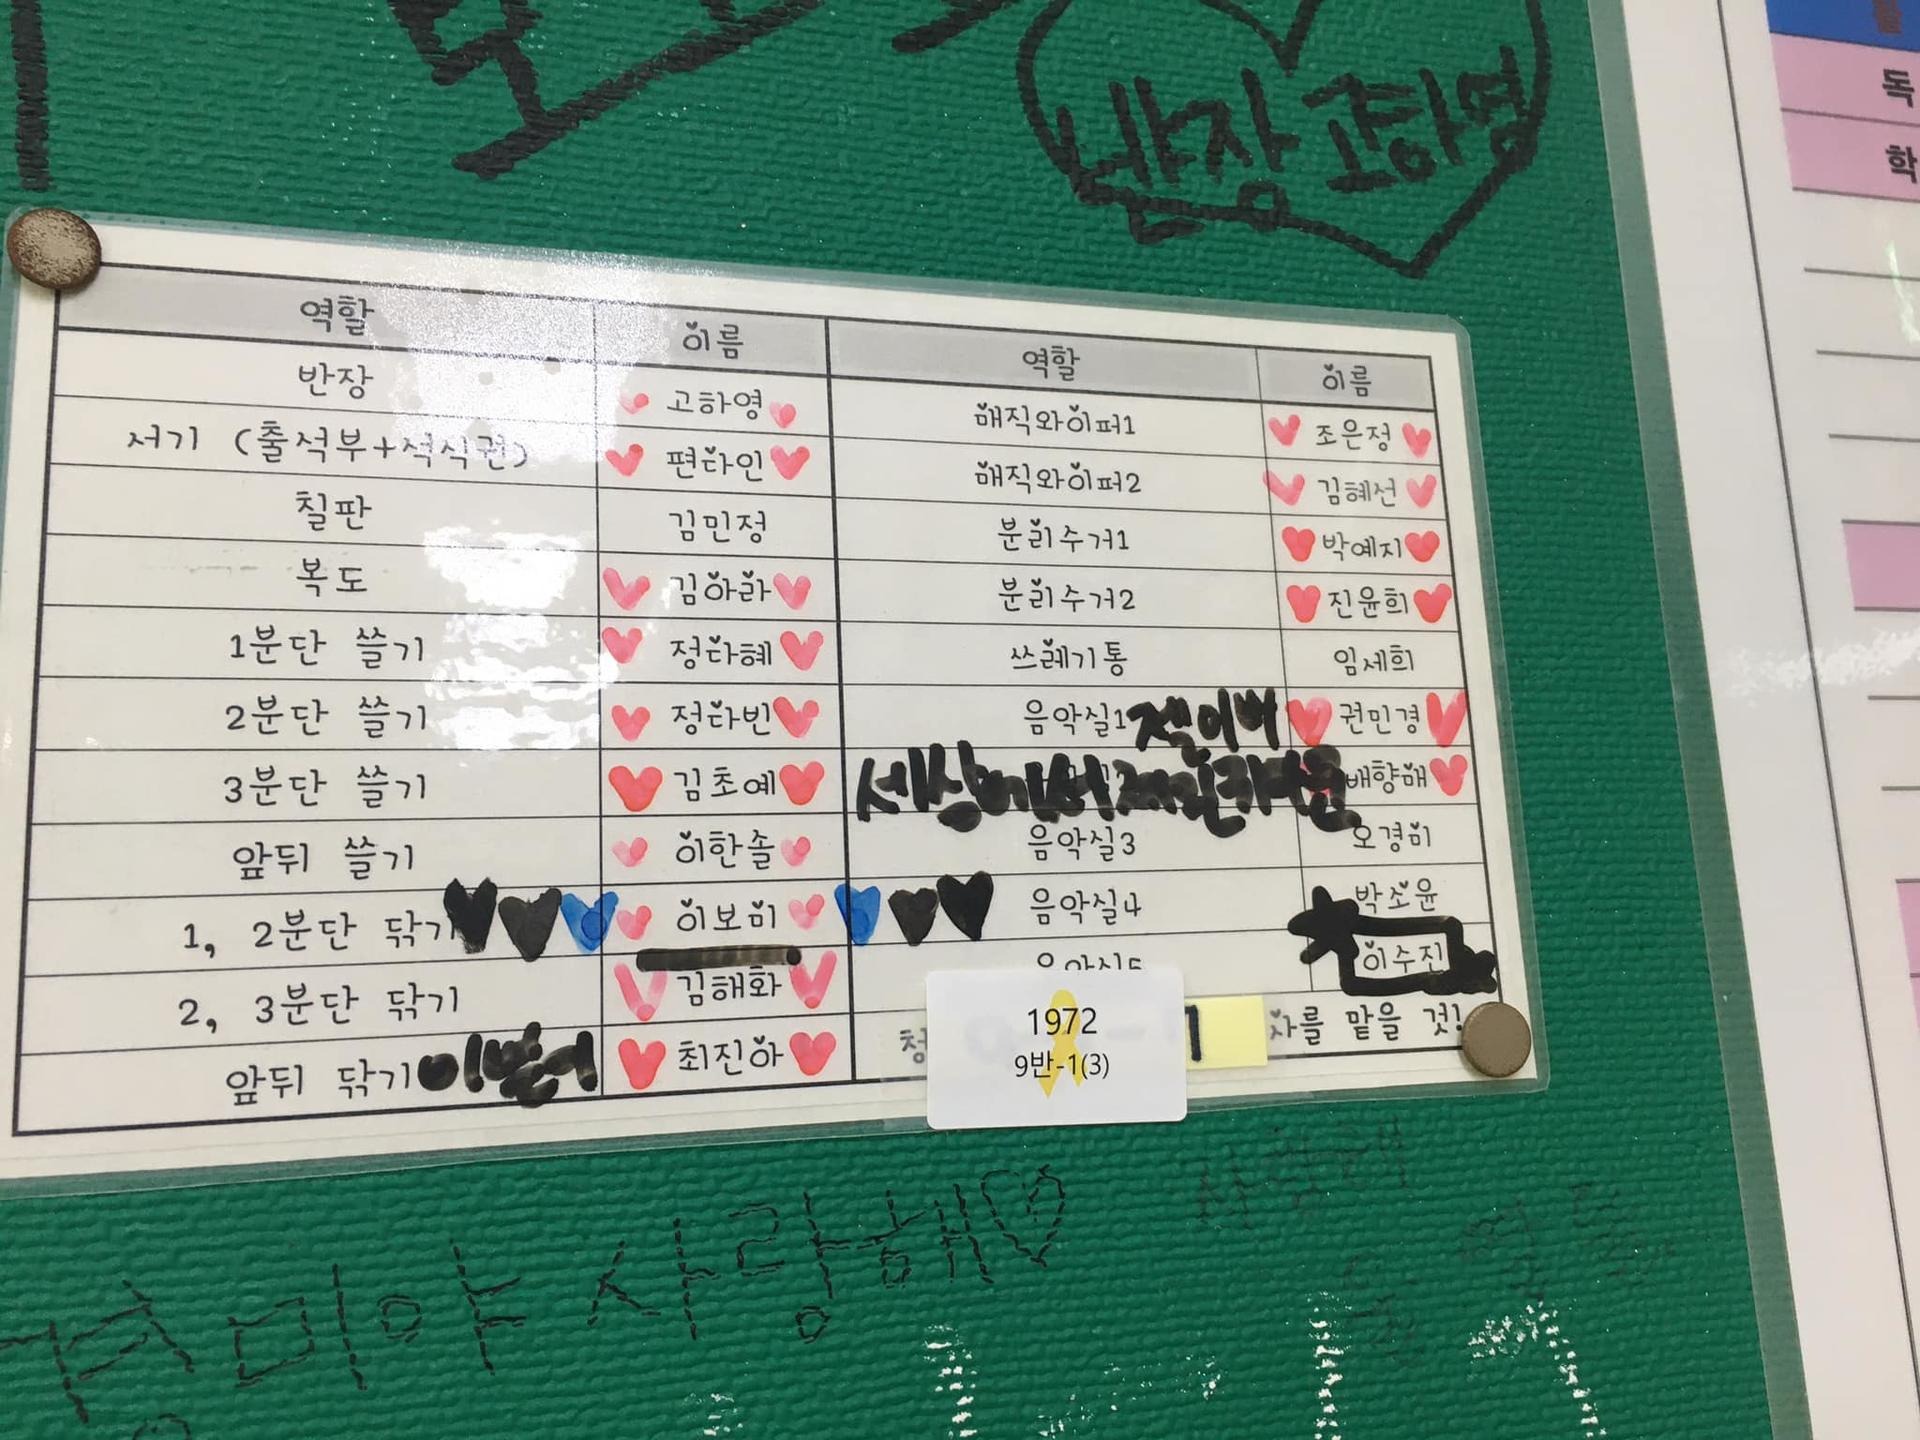 반장 고하영
독
학
역할 이름 역할 이름
반장 고하영 매직와이퍼1 조은정
서기 (출석부+석식권) 편다인 매직와이퍼2 김혜선
칠판 김민정 분리수거1 박예지
복도 김아라 분리수거2 진윤희
1분단 쓸기 정다혜 쓰레기통 임세희
2분단 쓸기 정다빈 음악실1 젤이뻐 권민경
3분단 쓸기 김초예 세상에서 제일 배향매
앞뒤 쓸기 이한솔 음악실3 오경미
1, 2분단 닦기 이보미 음악실4 박소윤
2, 3분단 닦기 김해화 음악실5 이수진
앞뒤 닦기 최진아 청 차를 맡을 것!
1972
9반-1(3)
미야 사랑해